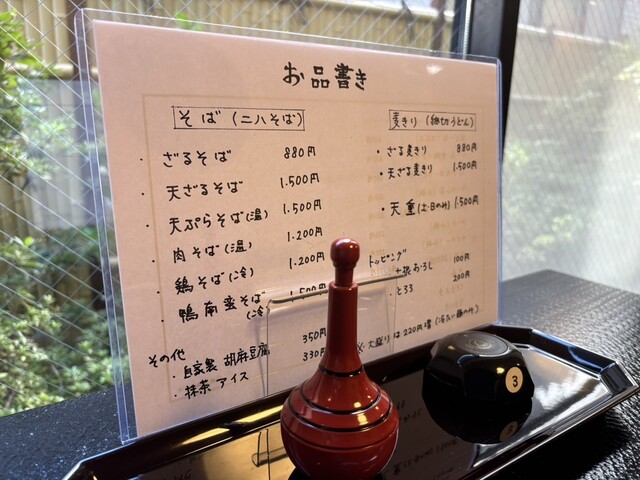 お品書き
そば（二八そば）
・ざるそば 880円
・天ざるそば 1.500円
・天ぷらそば(温) 1.500円
・肉そば(温) 1.200円
・鶏そば(冷) 1.200円
・鴨南蛮そば(冷) 1.500円
その他
・自家製 胡麻豆腐 350円
・抹茶アイス 330円
麦きり（細切うどん）
・ざる麦きり 880円
・天ざる麦きり 1.500円
・天重(土・日のみ) 1.500円
トッピング
おろし 100円
とろろ 200円
大盛りは220円増(冷たい麺のみ)
3